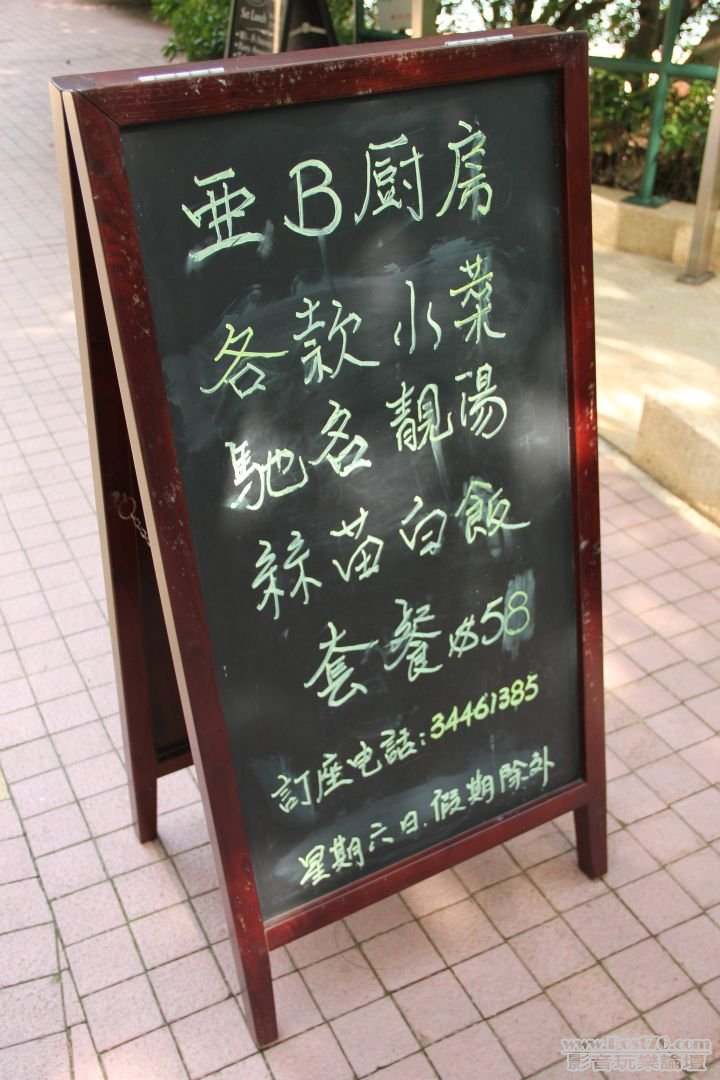 Set Lunch
亜B厨房
各款小菜
馳名靚湯
絲苗白飯
套餐$58
訂座电話:34461385
星期六日.假期除外
www.Post76.com
影音玩樂論壇